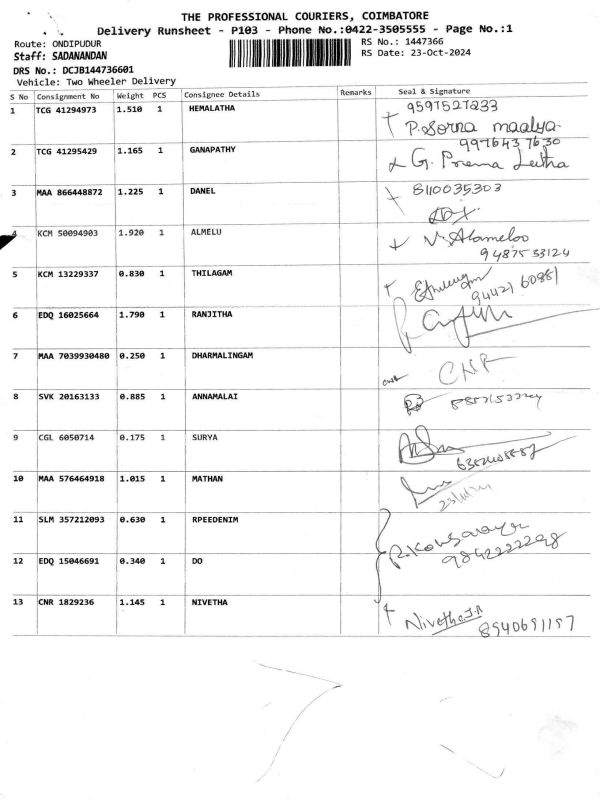 THE PROFESSIONAL COURIERS, COIMBATORE
Delivery Runsheet - P103 - Phone No.:0422-3505555 - Page No.:1
Route: ONDIPUDUR
RS No.: 1447366
Staff: SADANANDAN
RS Date: 23-Oct-2024
DRS No.: DCJB144736601
Vehicle: Two Wheeler Delivery
S No Consignment No Weight PCS Consignee Details Remarks Seal & Signature
1 TCG 41294973 1.510 1 HEMALATHA 9597527233
P. Sorna maalya
2 TCG 41295429 1.165 1 GANAPATHY 9976437630
G. Prema Leitha
3 MAA 866448872 1.225 1 DANEL 8110035303
4 KCM 50094903 1.920 1 ALMELU V. Alameloo
9487533124
5 KCM 13229337 0.830 1 THILAGAM
94421 60881
6 EDQ 16025664 1.790 1 RANJITHA
7 MAA 7039930480 0.250 1 DHARMALINGAM CNR
8 SVK 20163133 0.885 1 ANNAMALAI
9 CGL 6050714 0.175 1 SURYA
10 MAA 576464918 1.015 1 MATHAN
11 SLM 357212093 0.630 1 RPEEDENIM
9842222298
12 EDQ 15046691 0.340 1 DO
13 CNR 1829236 1.145 1 NIVETHA Nivetha.J.R
8940691197